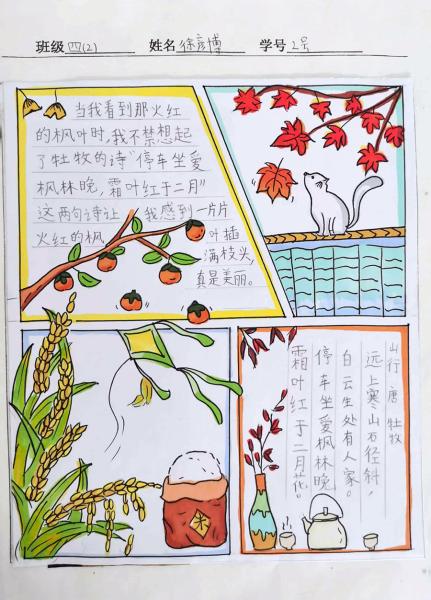 班级 四(2) 姓名 徐彦博 学号 2号
当我看到那火红
的枫叶时,我不禁想起
了牡牧的诗“停车坐爱
枫林晚,霜叶红于二月”
这两句诗让 我感到一片片
火红的枫 叶插
满枝头,
真是美丽。
山行 唐 牡牧
远上寒山石径斜,
白云生处有人家。
停车坐爱枫林晚
霜叶红于二月花。
米